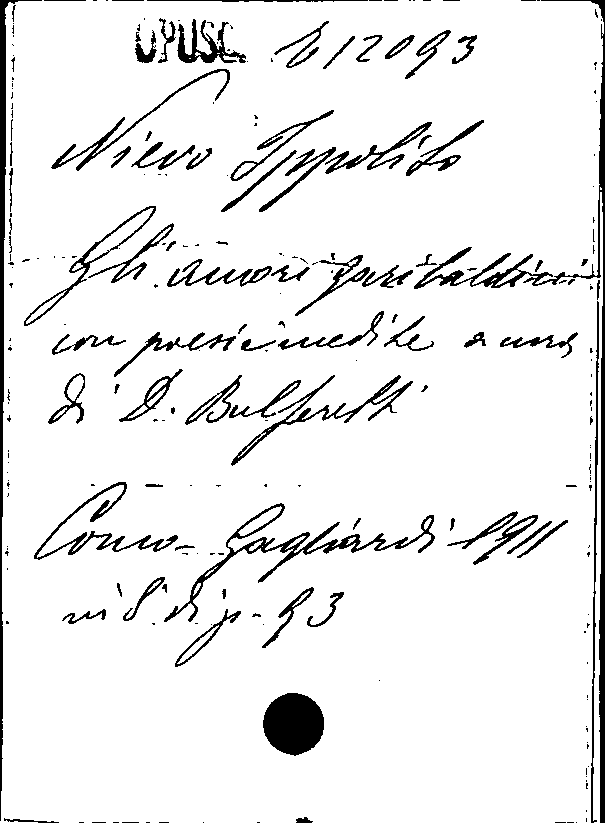 OPUSC. E 12093
Nievo Ippolito
Gli amori garibaldini
con poesie inedite a cura
di D. Bulferetti
Como - Gagliardi 1911
in 8° di p. 93